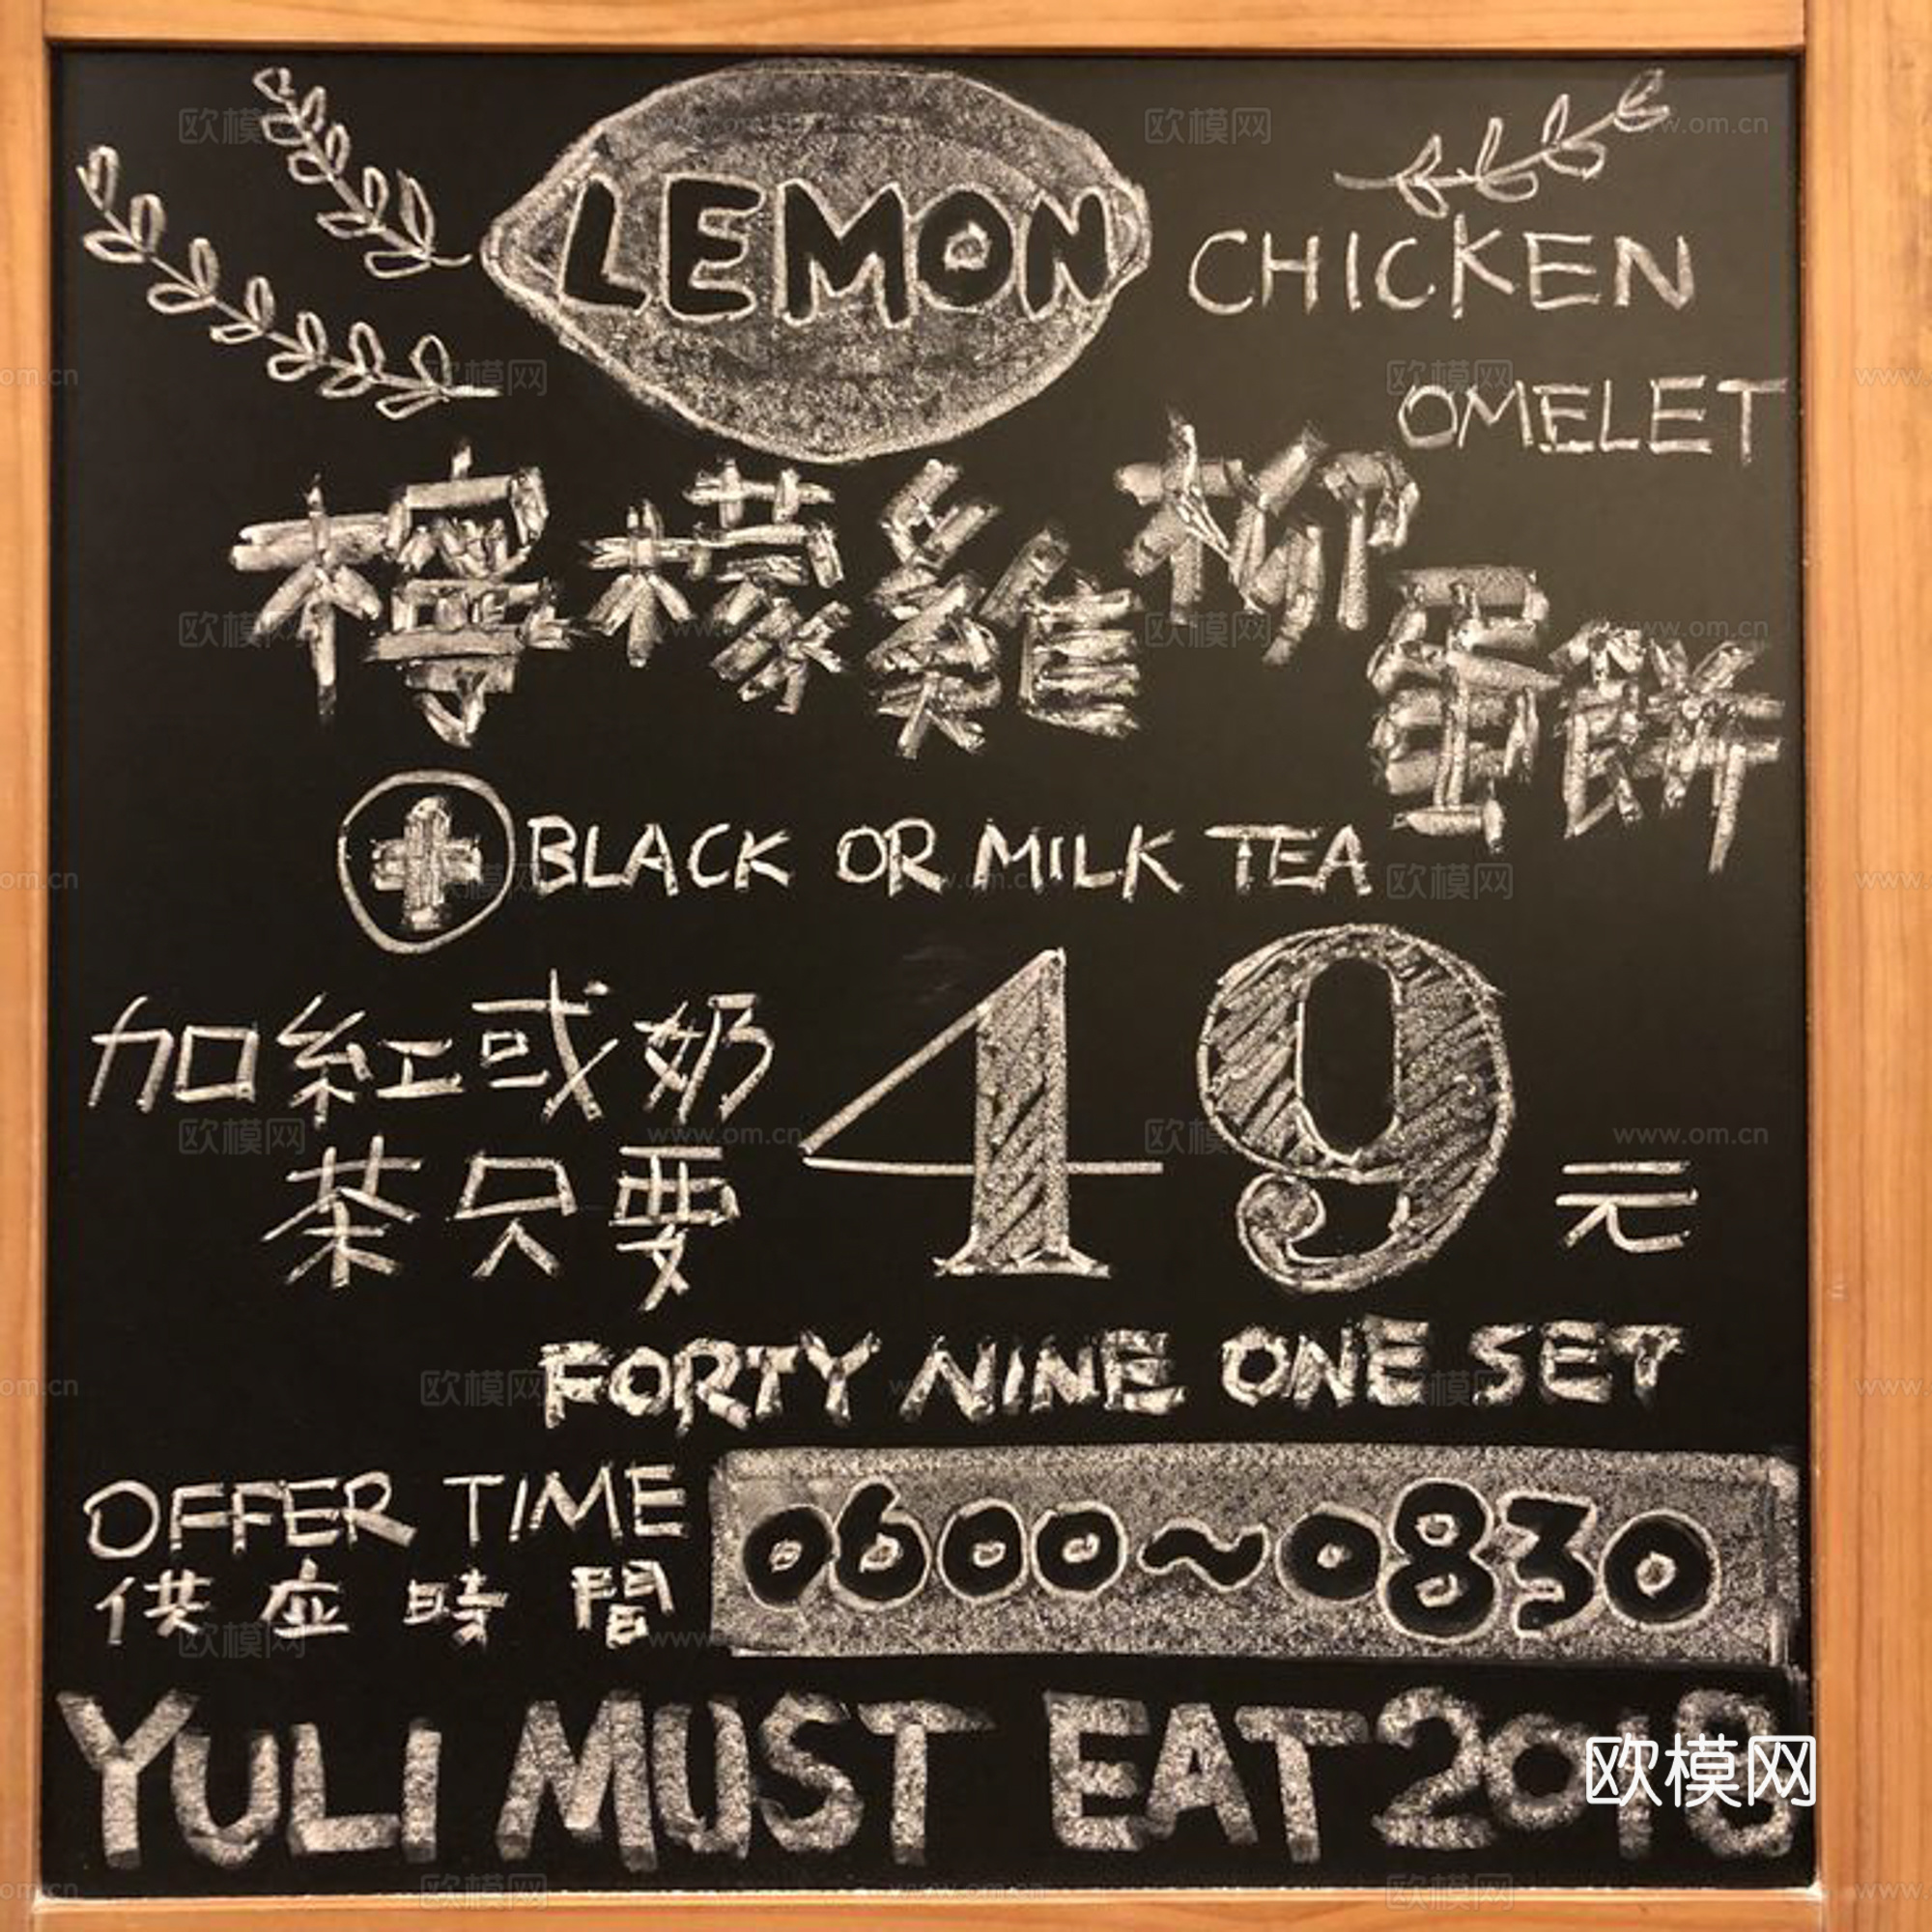 LEMON CHICKEN
OMELET
檸檬雞柳蛋餅
+ BLACK OR MILK TEA
加紅或奶
茶只要 49元
FORTY NINE ONE SET
OFFER TIME 0600~0830
供应時間
YULI MUST EAT 2018
欧模网
www.om.cn